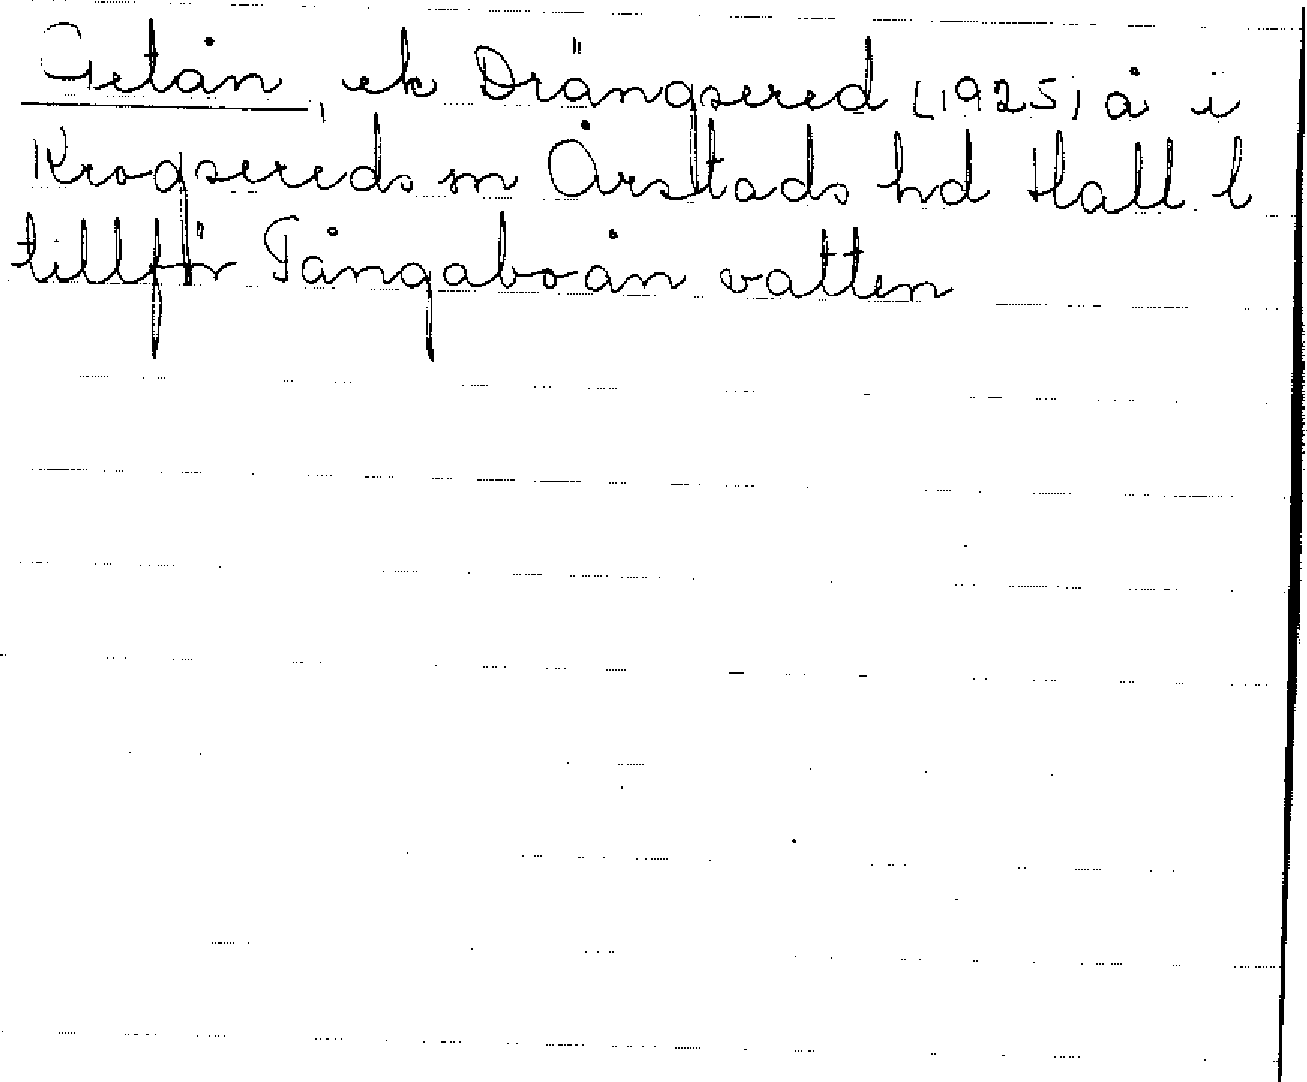 Getån, ek Drängsered (1925) å i
Krogsereds sn Årstads hd Hall l
tillför Fångaboån vatten